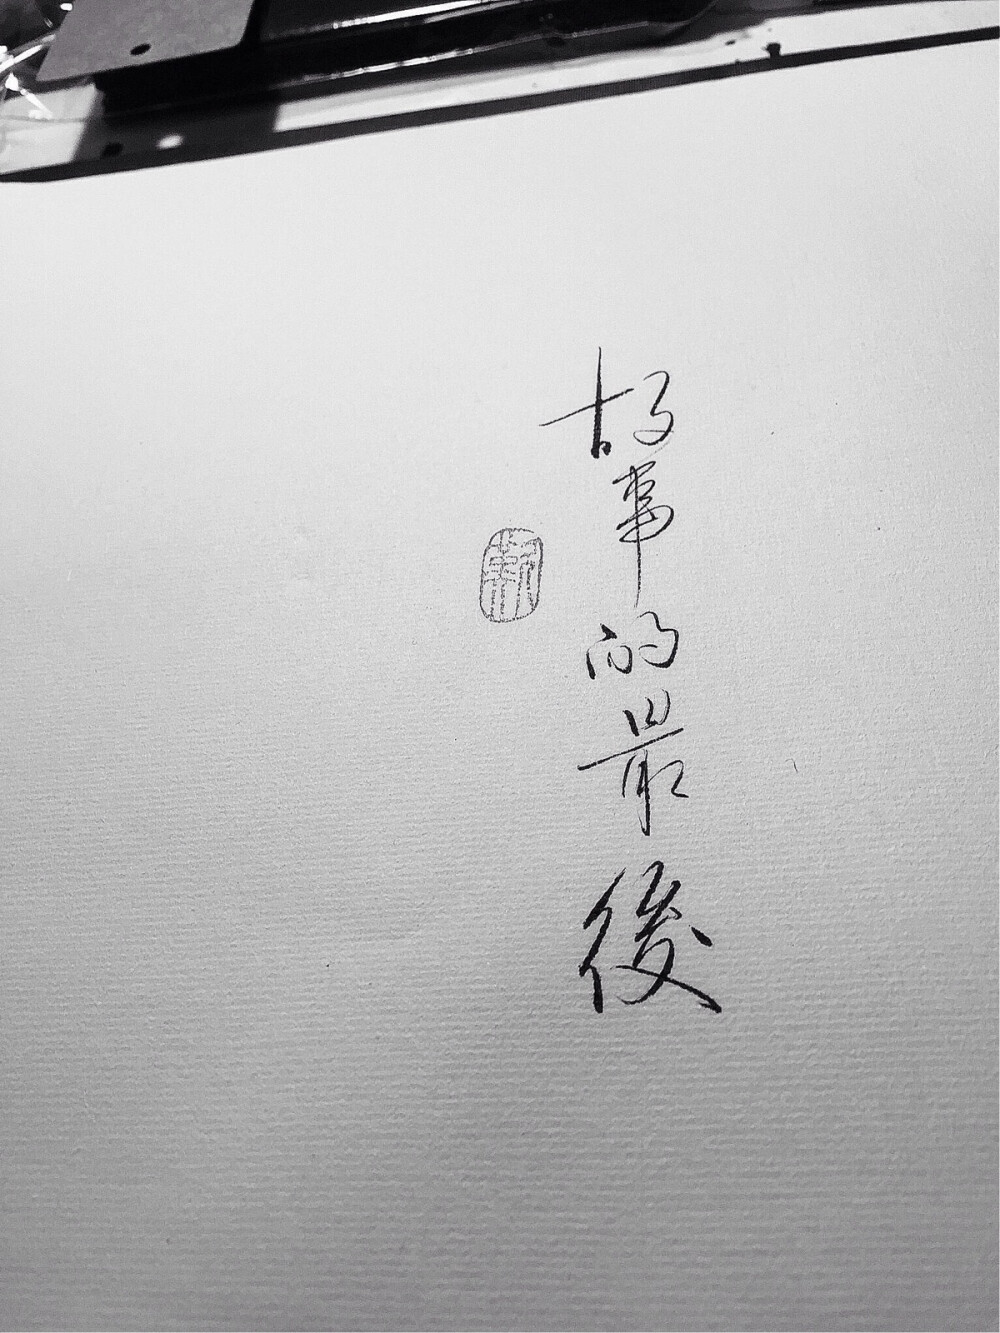 故事的最後